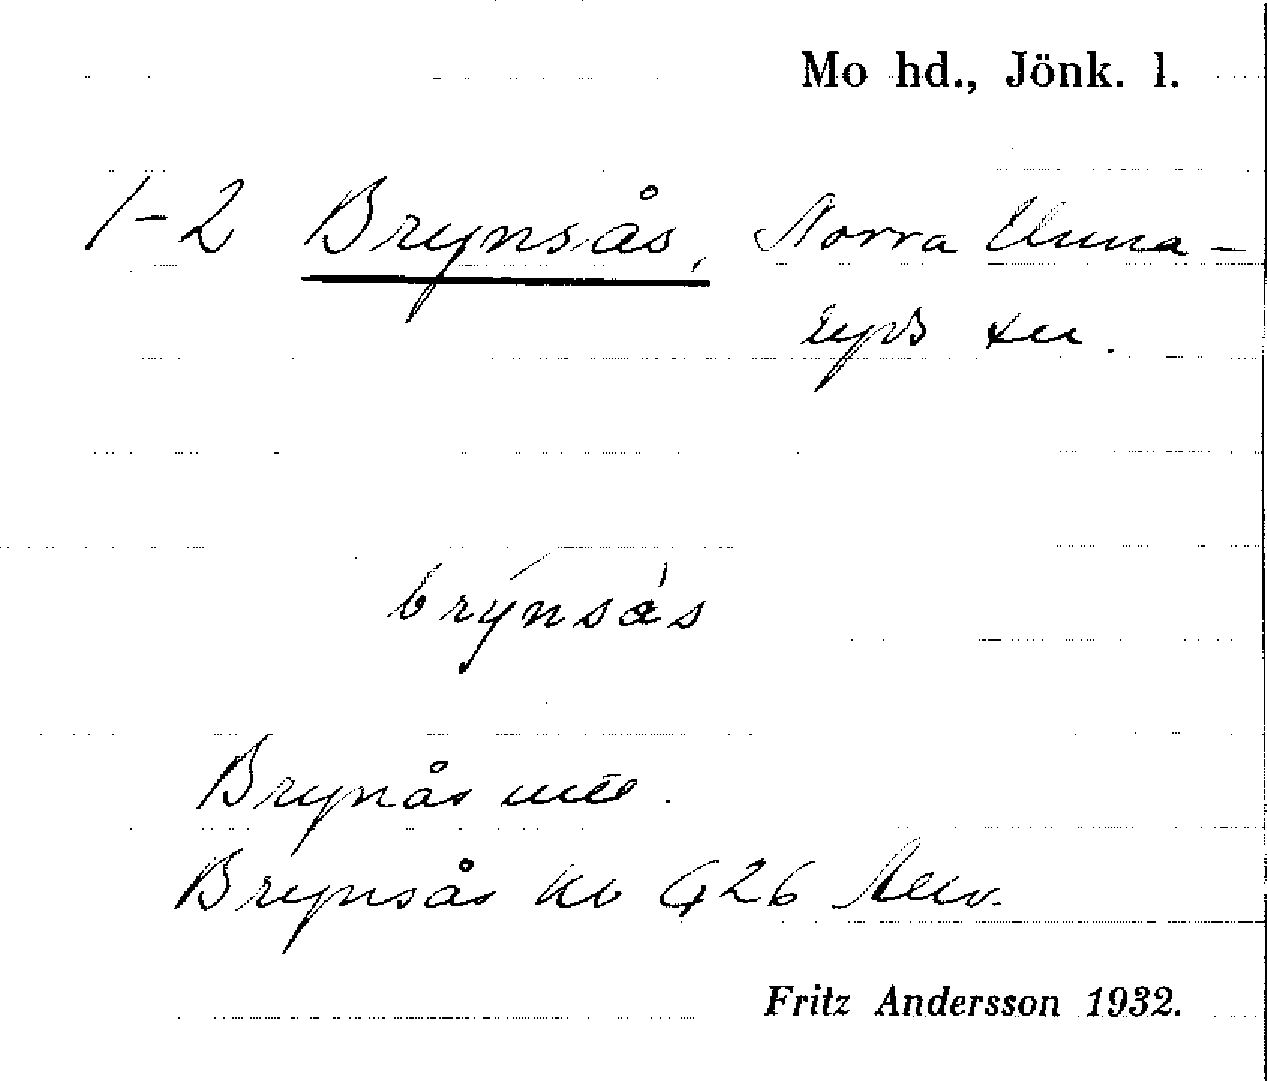 Mo hd., Jönk. l.
1-2 Brynsås, Norra Unna-
ryds sn.
brýnsás
Brynås
Brynsås
Fritz Andersson 1932.